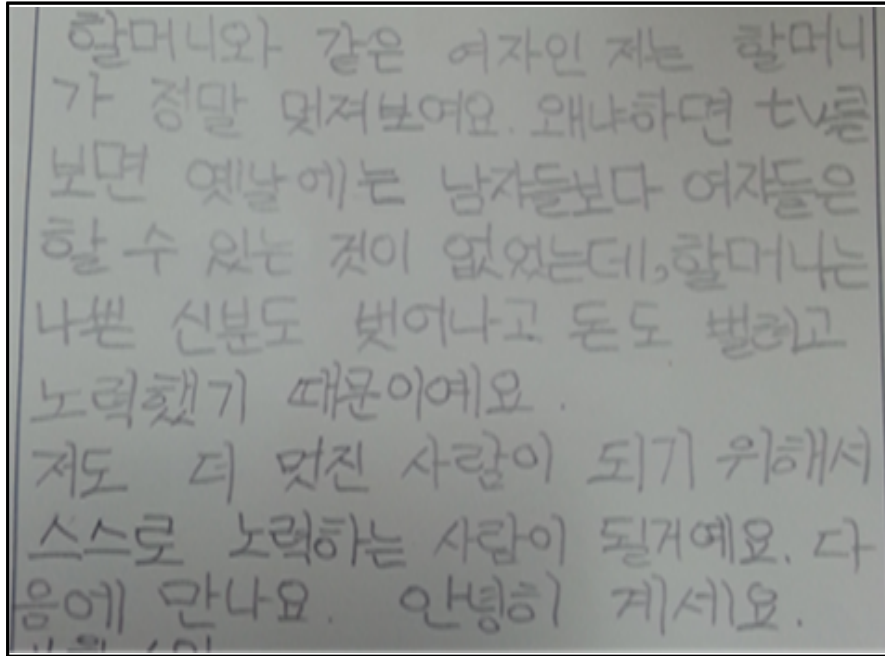 할머니와 같은 여자인 저는 할머니
가 정말 멋져보여요. 왜냐하면 tv를
보면 옛날에는 남자들보다 여자들은
할 수 있는 것이 없었는데,할머니는
나쁜 신분도 벗어나고 돈도 벌려고
노력했기 때문이예요.
저도 더 멋진 사람이 되기 위해서
스스로 노력하는 사람이 될거예요. 다
음에 만나요. 안녕히 계세요.